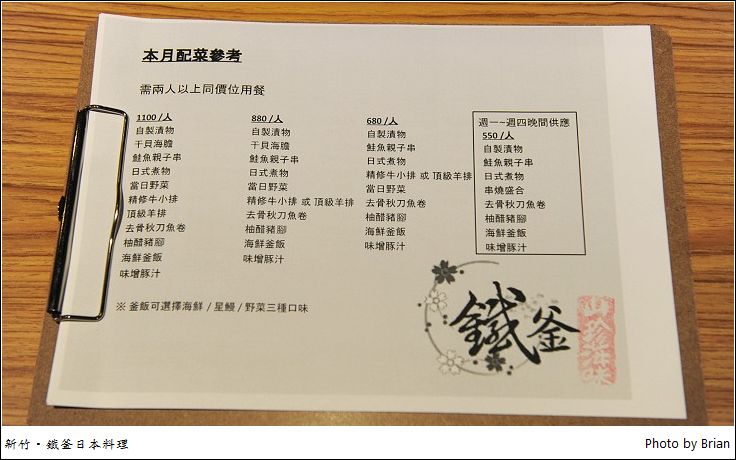 本月配菜參考
需兩人以上同價位用餐
1100 /人
自製漬物
干貝海膽
鮭魚親子串
日式煮物
當日野菜
精修牛小排
頂級羊排
去骨秋刀魚卷
柚醋豬腳
海鮮釜飯
味增豚汁
880 /人
自製漬物
干貝海膽
鮭魚親子串
日式煮物
當日野菜
精修牛小排 或 頂級羊排
去骨秋刀魚卷
柚醋豬腳
海鮮釜飯
味增豚汁
680 /人
自製漬物
鮭魚親子串
日式煮物
精修牛小排 或 頂級羊排
當日野菜
去骨秋刀魚卷
柚醋豬腳
海鮮釜飯
味增豚汁
週一~週四晚間供應
550 /人
自製漬物
鮭魚親子串
日式煮物
串燒盛合
去骨秋刀魚卷
柚醋豬腳
海鮮釜飯
味增豚汁
※ 釜飯可選擇海鮮 / 星鰻 / 野菜三種口味
鐵釜
山珍海味
新竹‧鐵釜日本料理
Photo by Brian